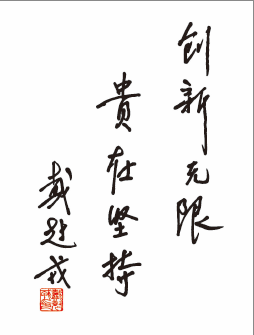 创新无限
貴在坚持
戴尅戎